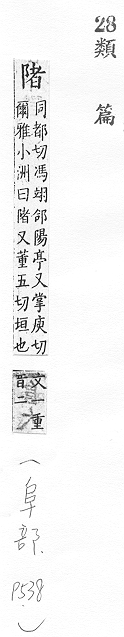 28類篇
陼
同都切馮翊郃陽亭又掌庾切
爾雅小洲曰陼又董五切垣也
文一重
音二
(阜部.P538)